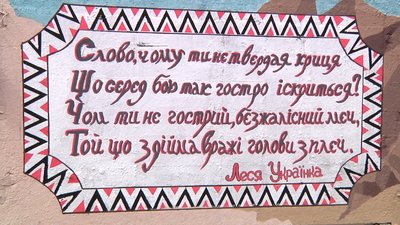 Слово, чому ти не твердая криця
Що серед бою так гостро іскриться?
Чом ти не гострий, безжалісний меч,
Той що здійма вражі голови з плеч.
Леся Українка